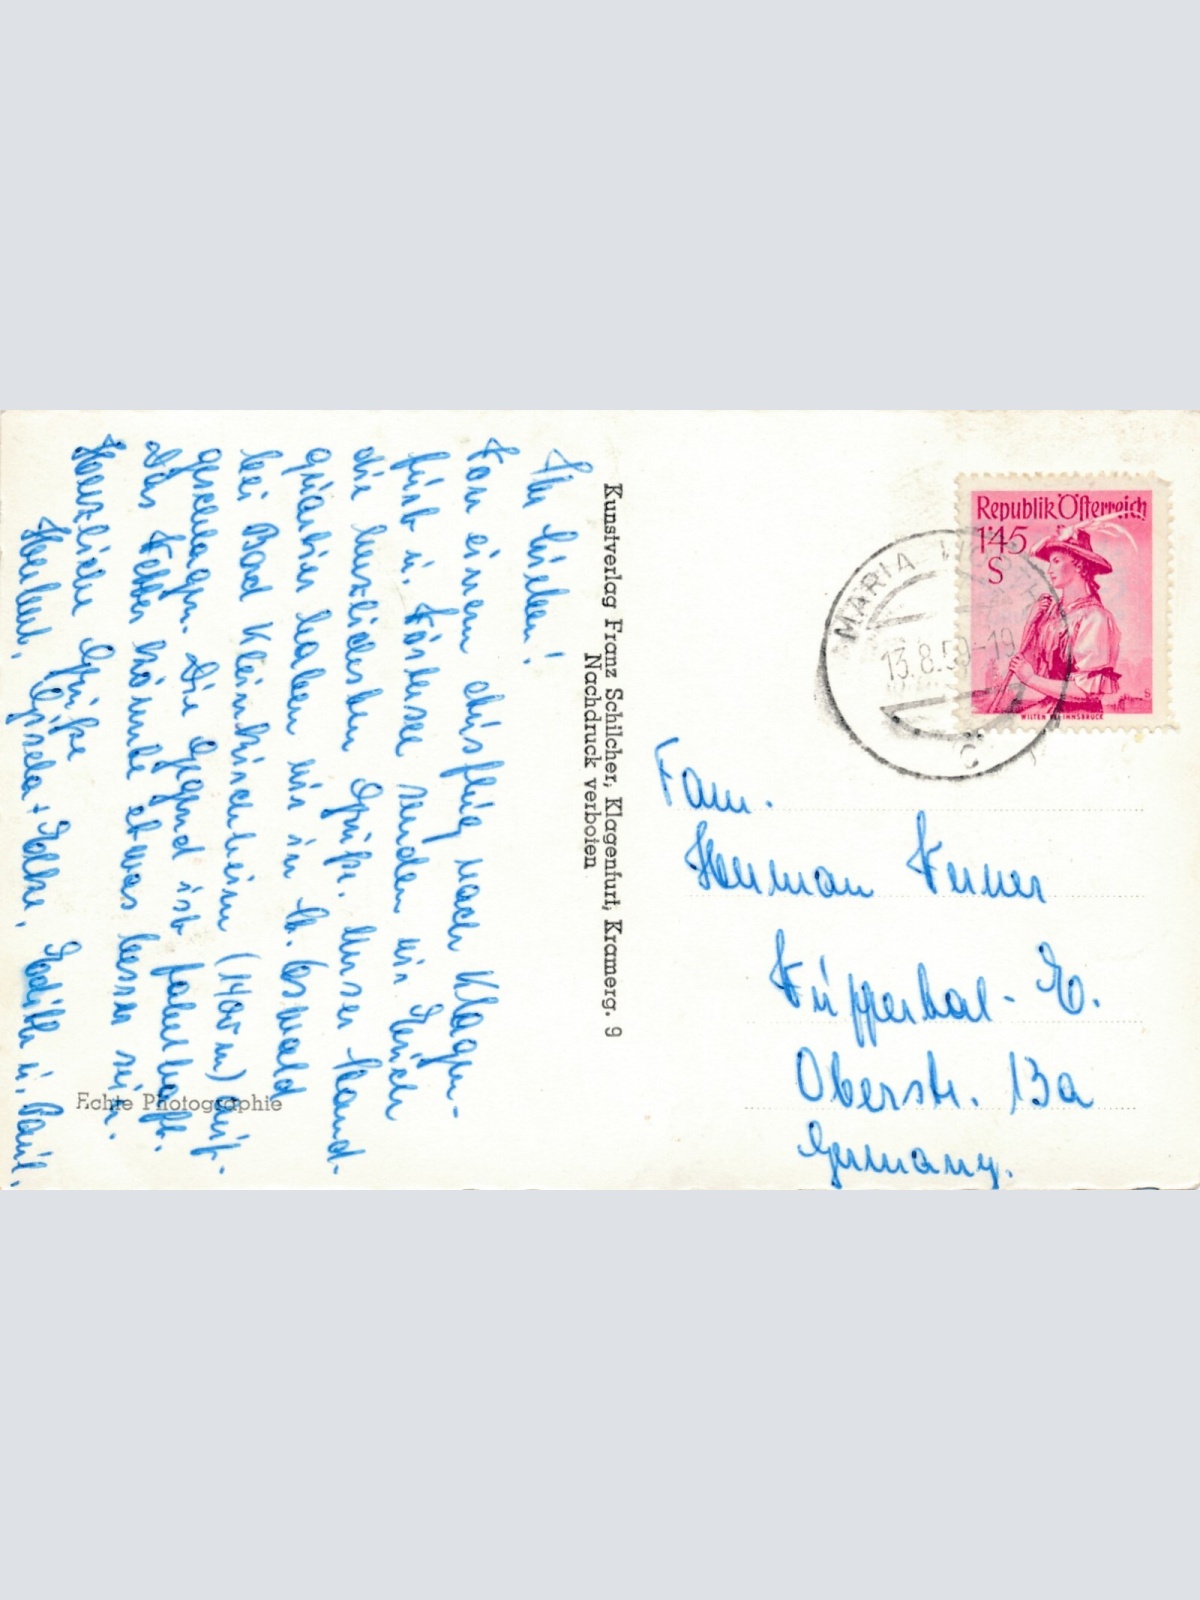 Ihr Lieben!
Von einem Ausflug nach Klagen-
furt u. Wörthersee senden wir Euch
die herzlichsten Grüße. Unser Stand-
quartier haben wir in St. Oswald
bei Bad Kleinkirchheim (1400 m) auf-
geschlagen. Die Gegend ist fabelhaft.
Das Wetter könnte etwas besser sein.
Herzliche Grüße
Herbert, Gisela + Elke, Edith u. Paul.
Echte Photographie
Kunstverlag Franz Schilcher, Klagenfurt, Kramerg. 9
Nachdruck verboten
Republik Österreich
1'45
S
WILTEN BEI INNSBRUCK
MARIA WÖRTH
13.8.59-19
c
Fam.
Herman
Wuppertal - E.
Oberstr. 13a
Germany.